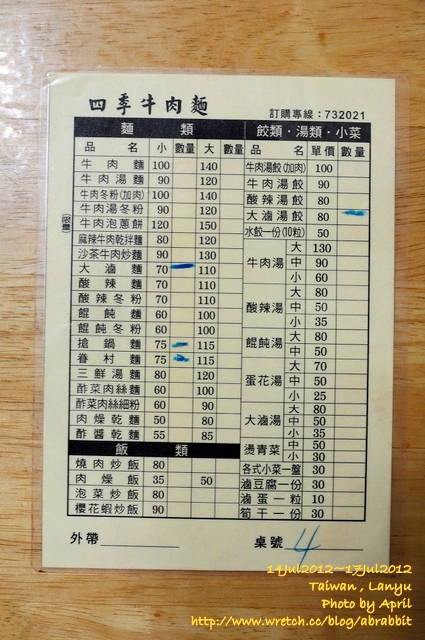 四季牛肉麵
訂購專線：732021
麵 類
品 名 小 數量 大 數量
牛肉麵 100 140
牛肉湯麵 90 120
牛肉冬粉(加肉) 100 140
牛肉湯冬粉 90 120
(限量) 牛肉泡蔥餅 120 150
麻辣牛肉乾拌麵 80 120
沙茶牛肉炒麵 90 130
大滷麵 70 110
酸辣麵 70 110
酸辣冬粉 70 110
餛飩麵 60 100
餛飩冬粉 60 100
搶鍋麵 75 115
眷村麵 75 115
三鮮湯麵 80 120
酢菜肉絲麵 60 100
酢菜肉絲細粉 60 90
肉燥乾麵 50 80
酢醬乾麵 55 85
飯 類
燒肉炒飯 80
肉燥飯 35 50
泡菜炒飯 80
櫻花蝦炒飯 90
餃類・湯類・小菜
品 名 單價 數量
牛肉湯餃(加肉) 100
牛肉湯餃 90
酸辣湯餃 80
大滷湯餃 80
水餃一份(10粒) 50
牛肉湯 大 130
中 90
小 60
酸辣湯 大 80
中 50
小 35
餛飩湯 大 80
中 50
蛋花湯 大 70
中 50
小 25
大滷湯 大 80
中 50
小 35
燙青菜 大 50
中 30
各式小菜一盤 30
滷豆腐一份 30
滷蛋一粒 10
筍干一份 30
外帶 桌號 4
14Jul2012~17Jul2012
Taiwan , Lanyu
Photo by April
http://www.wretch.cc/blog/abrabbit